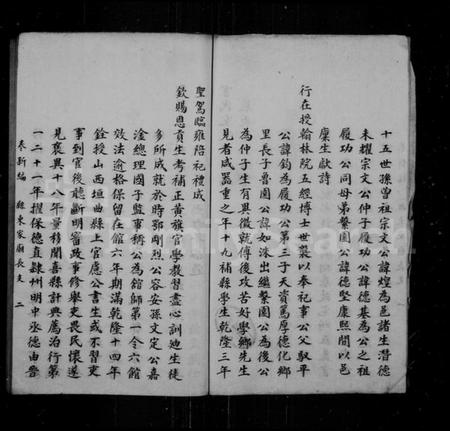 十五世孫曾祖宗文公諱煌為邑諸生潛德
未耀宗文公仲子履功公諱德基為公之祖
履功公同母弟繫園公諱德堅康熙間以邑
廩生獻詩
行在授翰林院五經博士世襲以奉祀事公父馭平
公諱鈞為履功公第三子天資篤厚德化鄉
里長子魯園公諱如泳出繼繫園公為後公
為仲子生有異徵就傅後攻苦好學鄉先生
見者咸器重之年十九補縣學生乾隆三年
聖駕臨雍陪祀禮成
欽賜恩貢生考補正黃旗官學教習盡心訓廸生徒
多所成就於時鄂剛烈公容安孫文定公嘉
淦總理國子監事稱公為館師第一令六館
效法逾格保留在館六年期滿乾隆十四年
銓授山西垣曲縣上官慮公書生或不習吏
事到官後聽斷明審政事修舉吏畏民懷遂
見褒異十八年量移聞喜縣計典薦治行第
一二十一年擢保德直隷州明中丞德由晋
奉新編 縣東家廟長支 二